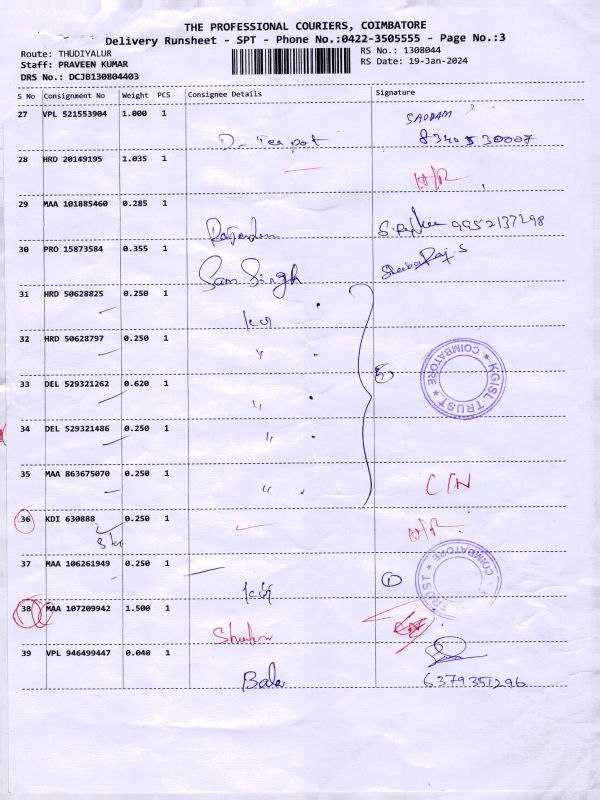 THE PROFESSIONAL COURIERS, COIMBATORE
Delivery Runsheet - SPT - Phone No.:0422-3505555 - Page No.:3
Route: THUDIYALUR
RS No.: 1308044
Staff: PRAVEEN KUMAR
RS Date: 19-Jan-2024
DRS No.: DCJB130804403
S No Consignment No Weight PCS Consignee Details Signature
27 VPL 521553904 1.000 1 SADDAM
8340530007
28 HRD 20149195 1.035 1
H/R
29 MAA 101885460 0.285 1
9952137298
30 PRO 15873584 0.355 1
Sam Singh
31 HRD 50628825 0.250 1
32 HRD 50628797 0.250 1
"
33 DEL 529321262 0.620 1
" 5
KGISL TRUST ★ COIMBATORE ★
34 DEL 529321486 0.250 1
"
35 MAA 863675070 0.250 1
" C/N
36 KDI 630888 0.250 1
H/R
37 MAA 106261949 0.250 1
1
TRUST ★ COIMBATORE ★
38 MAA 107209942 1.500 1
39 VPL 946499447 0.040 1
Bala 6379351296